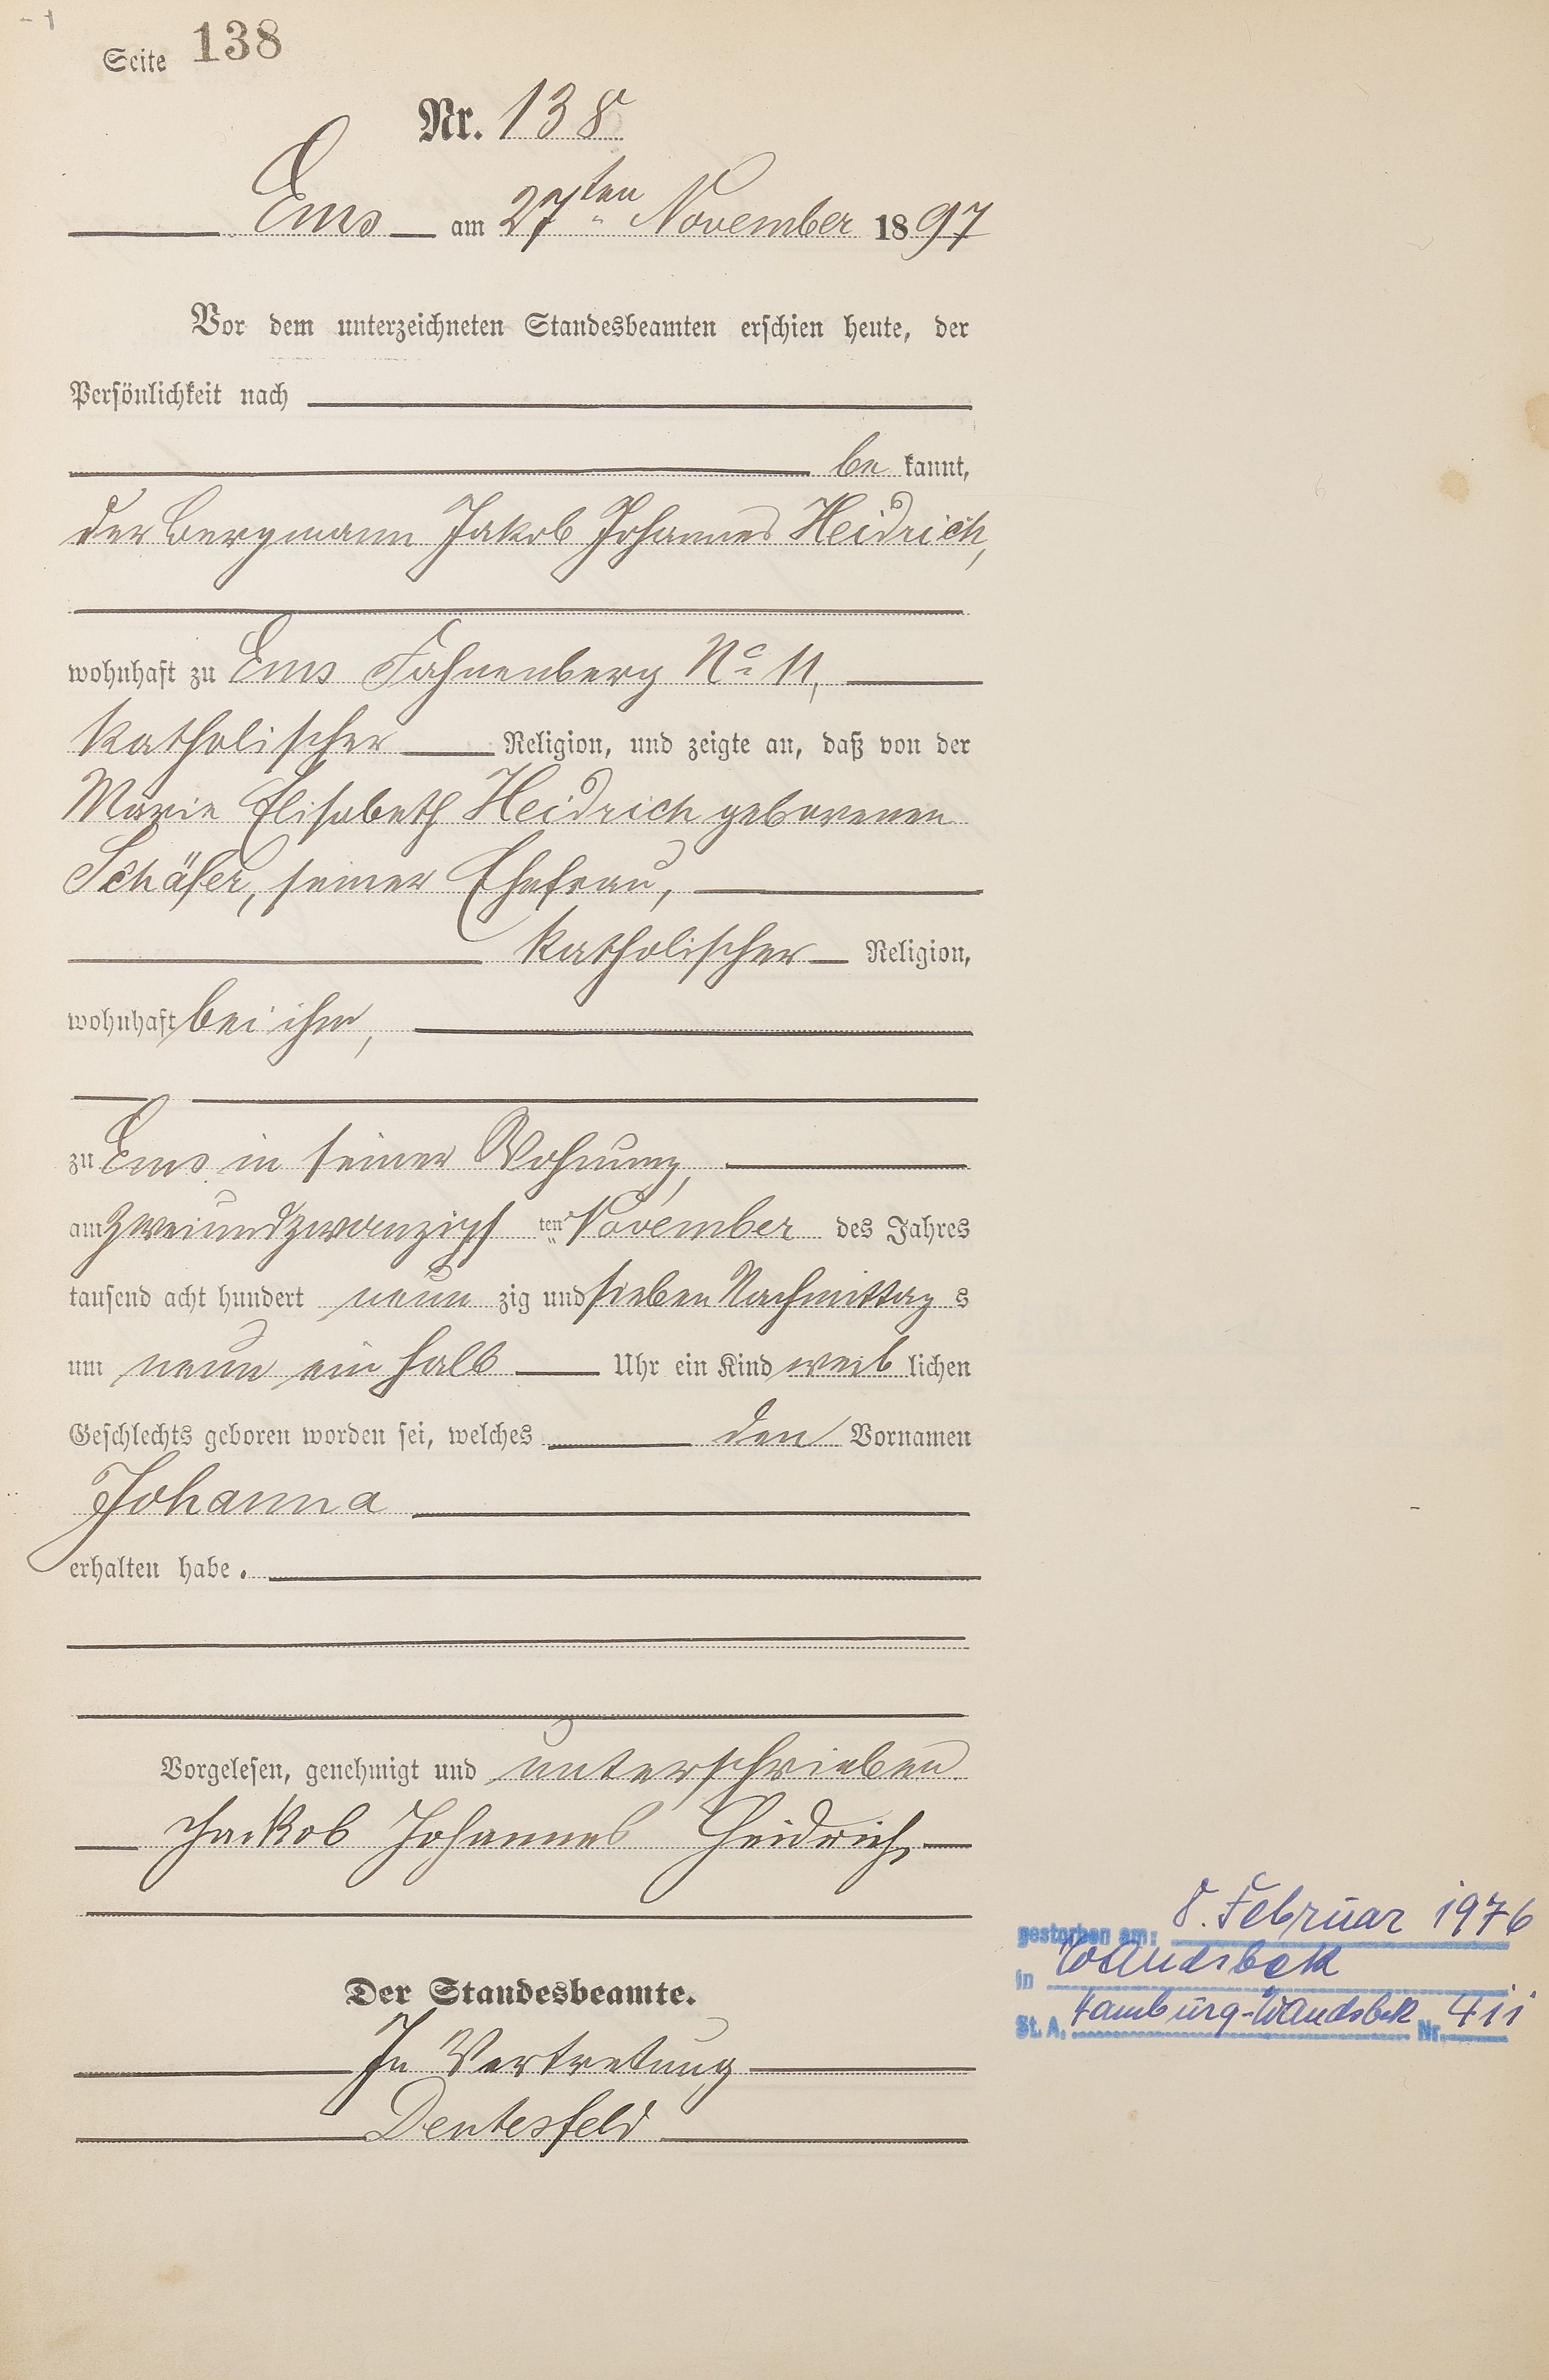 Seite 138
Nr. 138
Ems am 27ten November 1897
Vor dem unterzeichneten Standesbeamten erschien heute, der
Persönlichkeit nach
be kannt,
der Bergmann Jakob Johannes Heidrich,
wohnhaft zu Ems Fahnenberg No 11,
katholischer Religion, und zeigte an, daß von der
Marie Elisabeth Heidrich geborenen
Schäfer, seiner Ehefrau,
katholischer Religion,
wohnhaft bei ihm,
zu Ems in seiner Wohnung,
am zweiundzwanzigsten November des Jahres
tausend acht hundert neun zig und sieben Nachmittag s
um neun ein halb Uhr ein Kind weib lichen
Geschlechts geboren worden sei, welches den Vornamen
Johanna
erhalten habe.
Vorgelesen, genehmigt und unterschrieben
Jackob Johannes Heidrich
Der Standesbeamte.
In Vertretung
gestorben am: 8. Februar 1976
in Wandsbek
St. A. Hamburg-Wandsbek Nr. 411